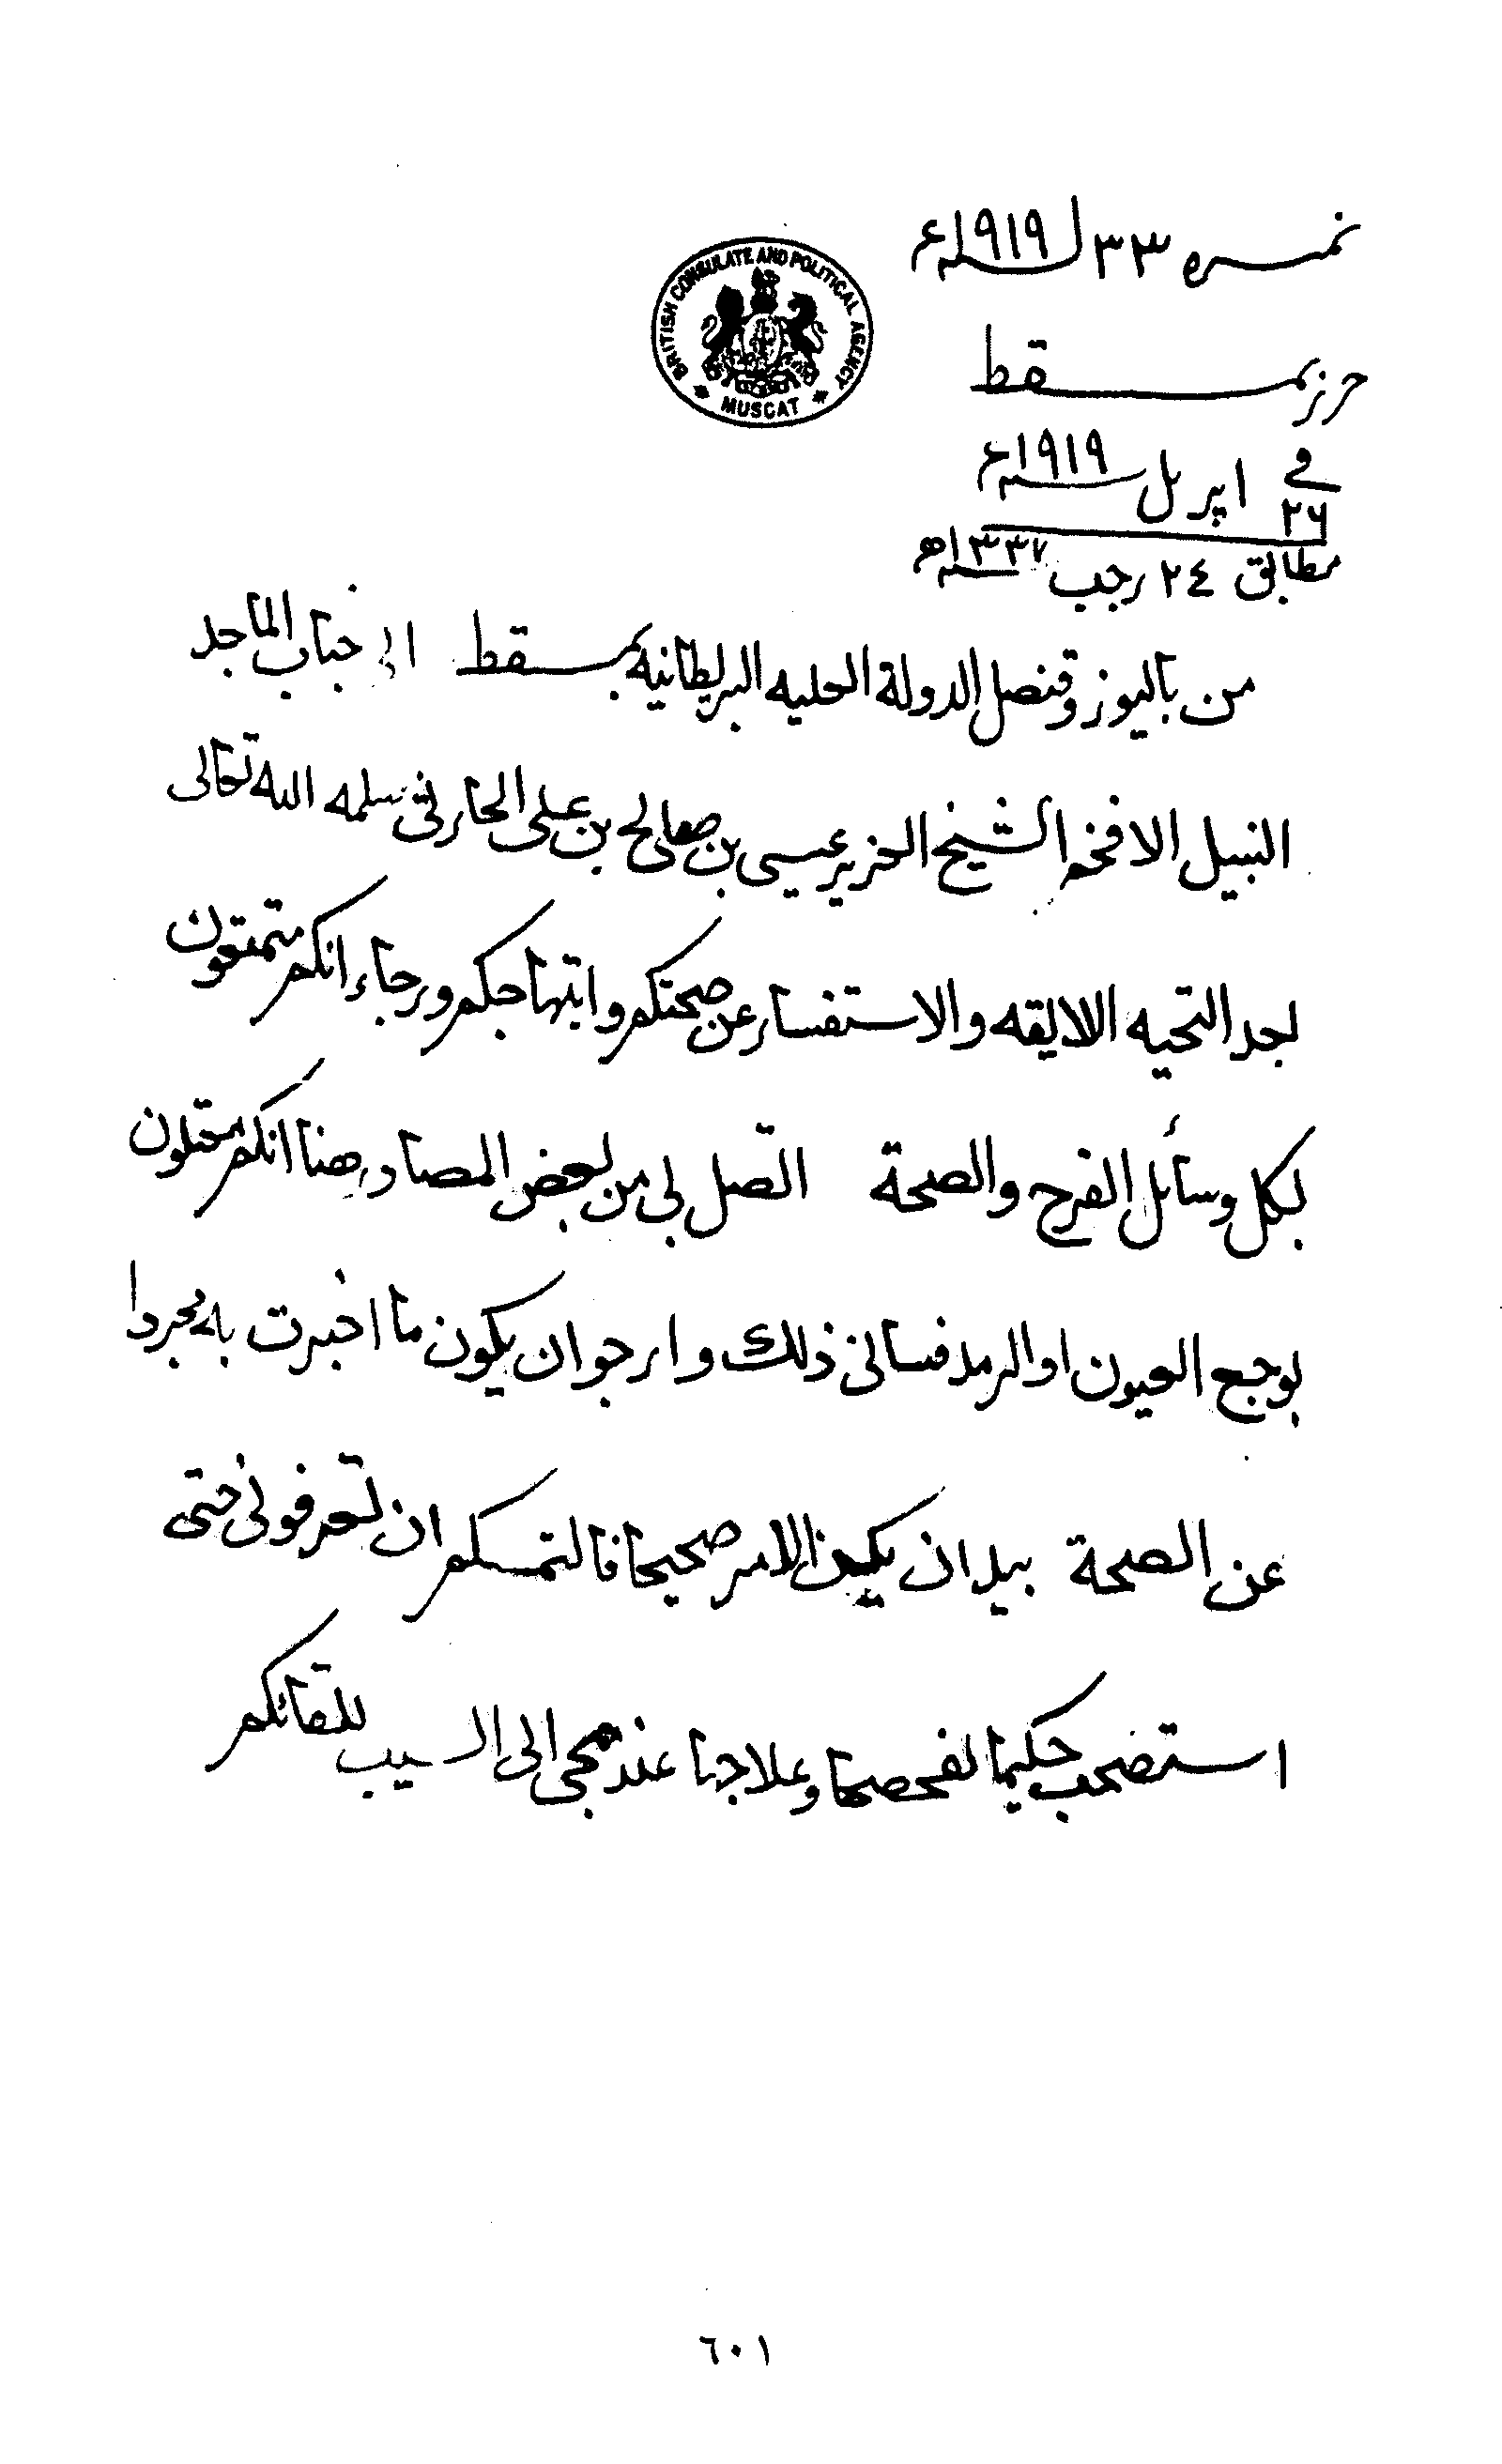 نمره ٣٣ لسنه ١٩١٩ع
BRITISH CONSULATE AND POLITICAL AGENCY
MUSCAT
حرر بمسقط
في ٢٦ اپريل سنه ١٩١٩ع
مطابق ٢٤ رجب سنه ١٣٣٧ه
من باليوز وقنصل الدولة العليه البريطانيه بمسقط الى جناب الماجد
النبيل الافخم الشيخ العزيز عيسى بن صالح بن علي الحارثي سلمه الله تعالى
بعد التحيه اللايقه والاستفسار عن صحتكم وابتهاجكم ورجاء انكم متمتعون
بكل وسائل الفرح والصحة اتصل بي من بعض المصادر هنا انكم معتلون
بوجع العيون او الرمد فساني ذلك وارجو ان يكون ما اخبرت به مجردا
عن الصحة بيد ان يكن الامر صحيحا فالتمسكم ان تعرفوني حتى
استصحب حكيما لفحصها وعلاجها عند مجي الى السيب للقائكم
٦٠١